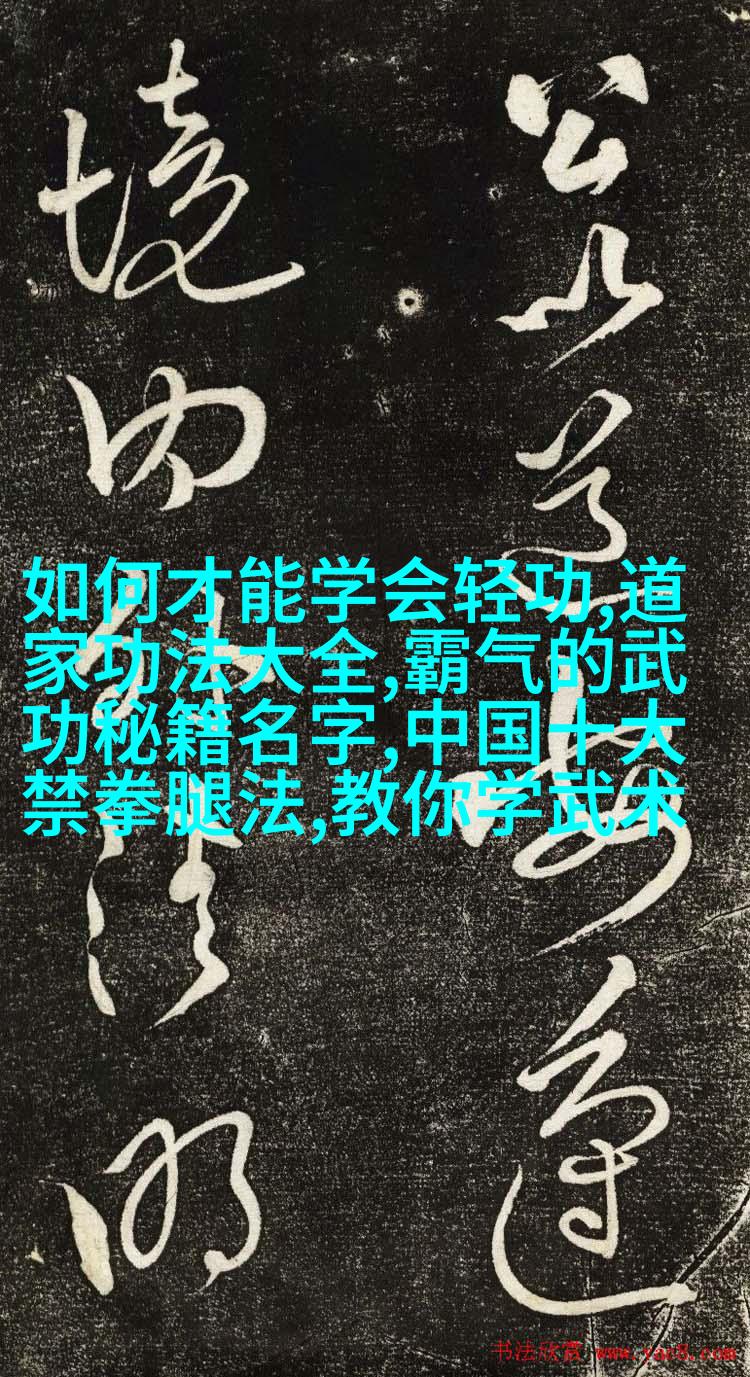 公以道海遵
境内殊清明
如何才能学会轻功,道
家功法大全,霸气的武
功秘籍名字,中国十大
禁拳腿法,教你学武术
书法欣赏 www.yac8.com